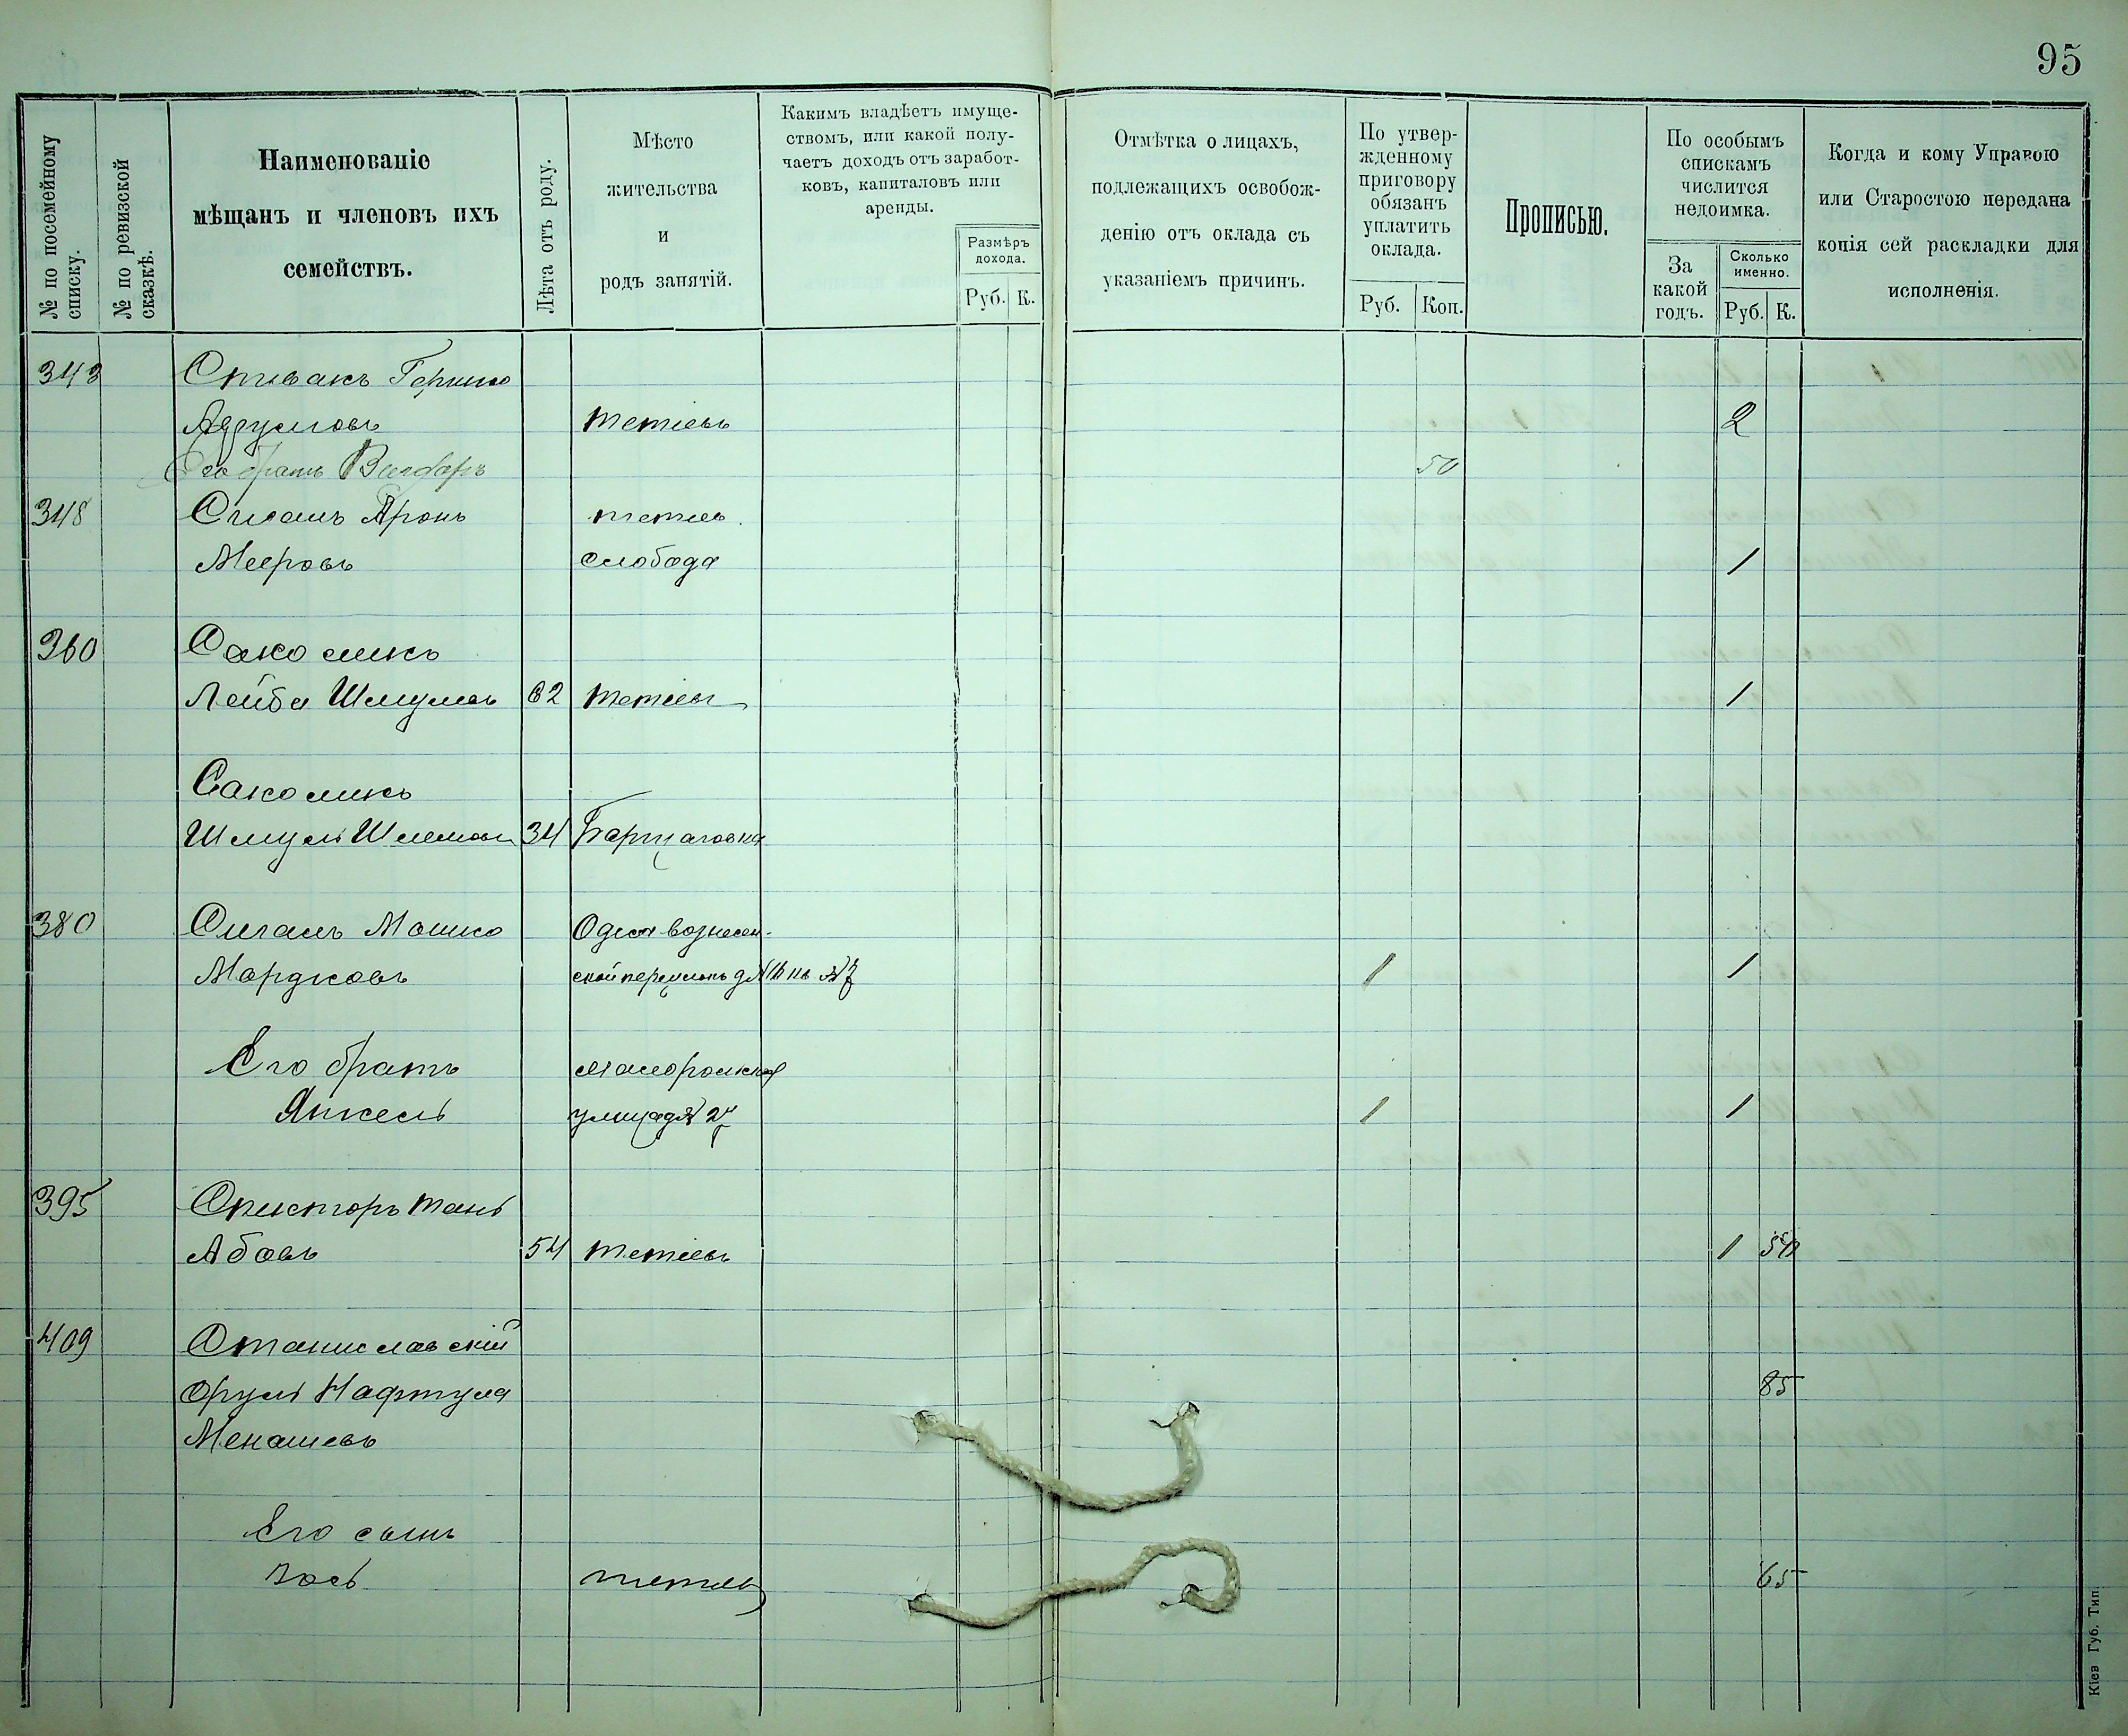 95
№ по посемейному списку.
№ по ревизской сказкѣ.
Наименованіе
мѣщанъ и членовъ ихъ
семействъ.
Лѣта отъ роду.
Мѣсто
жительства
и
родъ занятій.
Какимъ владѣетъ имуще-
ствомъ, или какой полу-
чаетъ доходъ отъ заработ-
ковъ, капиталовъ или
аренды.
Размѣръ
дохода.
Руб. К.
Отмѣтка о лицахъ,
подлежащихъ освобож-
денію отъ оклада съ
указаніемъ причинъ.
По утвер-
жденному
приговору
обязанъ
уплатить
оклада.
Руб. Коп.
Прописью.
По особымъ
спискамъ
числится
недоимка.
За
какой
годъ.
Сколько
именно.
Руб. К.
Когда и кому Управою
или Старостою передана
копія сей раскладки для
исполненія.
343 Спивакъ Гершко
Тетіевъ 2
Его братъ 50
348 Сигалъ Аронъ Тетіев
Мееровъ слобода 1
360 Соколикъ
Лейба Шмулев 62 Тетіев 1
Саколикъ
Шмуль Шлемов 34
380 Сигалъ Мошко Одеса вознесен-
Мордковъ ской переулокъ 1 1
Его братъ
Янкель улица д№ 24 1 1
395 Спикторъ
Абовъ 54 Тетіевъ 1 50
409 Станиславскій
Срулъ Нафтула 85
Менашевъ
Его сынъ
Іось Тетіев 65
Кіев Губ. Тип.